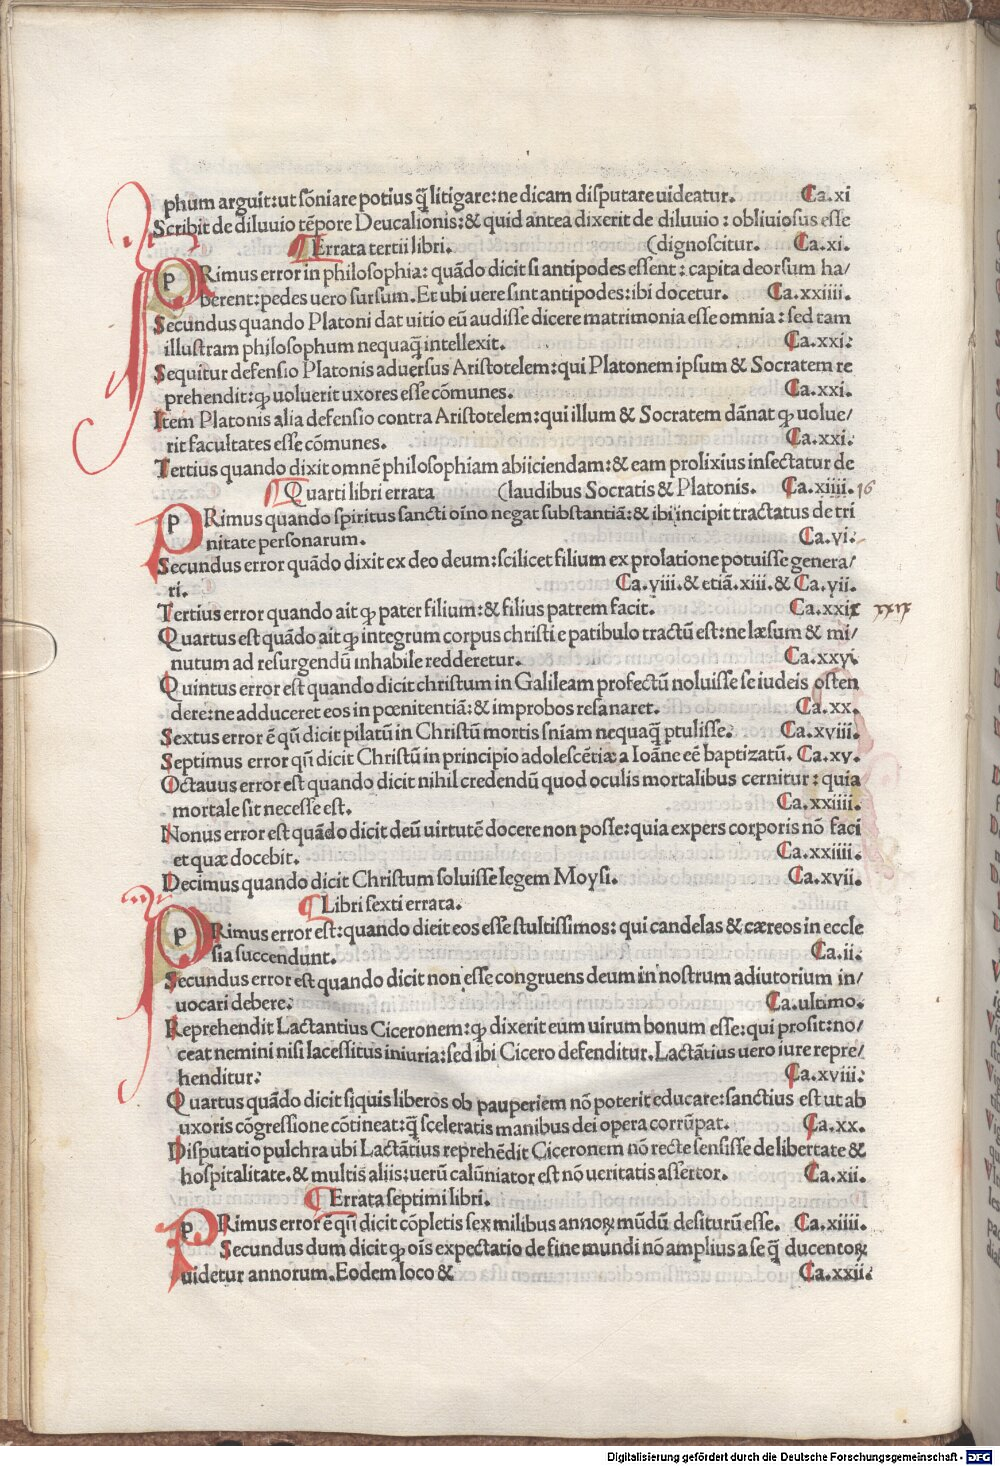 phum arguit:ut sõniare potius q̃ litigare:ne dicam disputare uideatur. Ca.xi
Scribit de diluuio tẽpore Deucaliõnis:& quid antea dixerit de diluuio: obliuiosus esse
Errata tertii libri. (dignoscitur. Ca.xi.
pRimus error in philosophia: quãdo dicit si antipodes essent: capita deorsum ha/
berent:pedes uero sursum.Et ubi uere sint antipodes:ibi docetur. Ca.xxiiii.
Secundus quando Platoni dat uitio eũ audisse dicere matrimonia esse omnia: sed tam
illustram philosophum nequaq̃ intellexit. Ca.xxi.
Sequitur defensio Platonis aduersus Aristotelem:qui Platonem ipsum & Socratem re
prehendit:ꝙ uoluerit uxores esse cõmunes. Ca.xxi.
Item Platonis alia defensio contra Aristotelem:qui illum & Socratem dãnat ꝙ uolue/
rit facultates esse cõmunes. Ca.xxi.
Tertius quando dixit omnẽ philosophiam abiiciendam:& eam prolixius insectatur de
Quarti libri errata (laudibus Socratis & Platonis. Ca.xiiii. 16
pRimus quando spiritus sancti oĩno negat substantiã:& ibi incipit tractatus de tri
nitate personarum. Ca.vi.
Secundus error quãdo dixit ex deo deum:scilicet filium ex prolatione potuisse genera/
ri. Ca.viii.& etiã.xiii.& Ca.vii.
Tertius error quando ait ꝙ pater filium:& filius patrem facit. Ca.xxix xxix
Quartus est quãdo ait ꝙ integrum corpus christi e patibulo tractũ est:ne læsum & mi/
nutum ad resurgendũ inhabile redderetur. Ca.xxvi
Quintus error est quando dicit christum in Galileam profectũ noluisse se iudeis osten
dere:ne adduceret eos in pœnitentiã:& improbos resanaret. Ca.xx.
Sextus error ẽ qñ dicit pilatũ in Christũ mortis sñiam nequaq̃ ptulisse. Ca.xviii.
Septimus error qñ dicit Christũ in principio adolescẽtiæ a Ioãne eẽ baptizatũ. Ca.xv.
Octauus error est quando dicit nihil credendũ quod oculis mortalibus cernitur: quia
mortale sit necesse est. Ca.xxiiii.
Nonus error est quãdo dicit deũ uirtutẽ docere non posse:quia expers corporis nõ faci
et quæ docebit. Ca.xxiiii.
Decimus quando dicit Christum soluisse legem Moysi. Ca.xvii.
Libri sexti errata.
pRimus error est:quando dicit eos esse stultissimos: qui candelas & cæreos in eccle
sia succendunt. Ca.ii.
Secundus error est quando dicit non esse congruens deum in nostrum adiutorium in/
uocari debere. Ca.ultimo.
Reprehendit Lactantius Ciceronem:ꝙ dixerit eum uirum bonum esse: qui prosit:no/
ceat nemini nisi lacessitus iniuria:sed ibi Cicero defenditur.Lactãtius uero iure repre/
henditur. Ca.xviii.
Quartus quãdo dicit siquis liberos ob pauperiem nõ poterit educare:sanctius est ut ab
uxoris cõgressione cõtineat:q̃ sceleratis manibus dei opera corrũpat. Ca.xx.
Disputatio pulchra ubi Lactãtius reprehẽdit Ciceronem nõ recte sensisse de libertate &
hospitalitate.& multis aliis:uerũ calũniator est nõ ueritatis assertor. Ca.xii.
Errata septimi libri.
pRimus error ẽ qñ dicit cõpletis sex milibus annoꝝ mũdũ desiturũ esse. Ca.xiiii.
Secundus dum dicit ꝙ oĩs expectatio de fine mundi nõ amplius a se q̃ ducentoꝝ
uidetur annorum.Eodem loco & Ca.xxii.
Digitalisierung gefördert durch die Deutsche Forschungsgemeinschaft - DFG